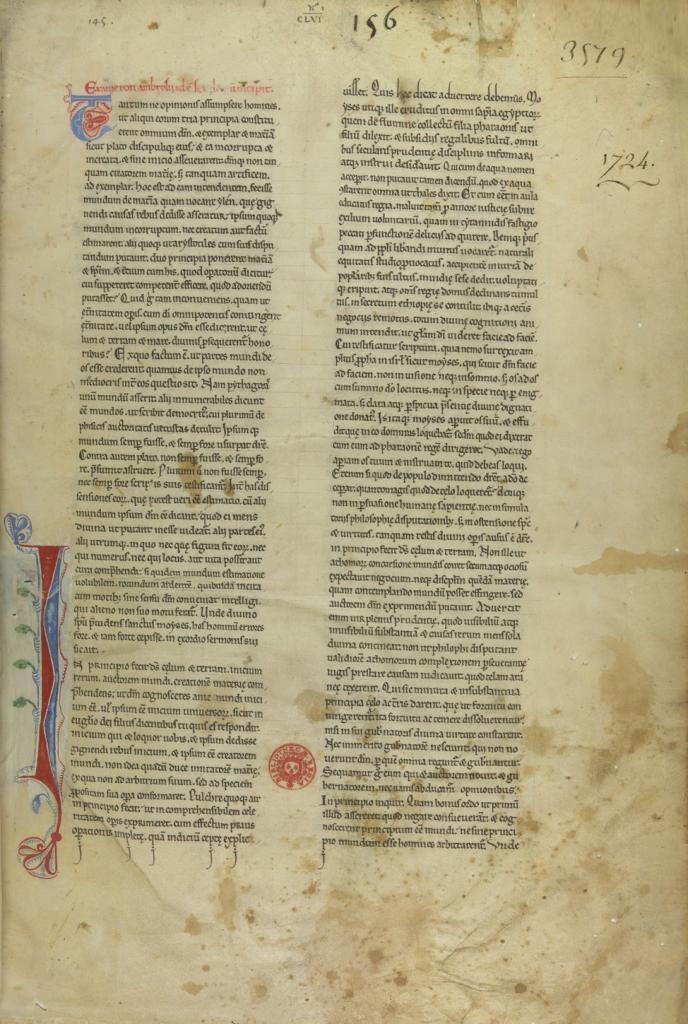 145.
CLVI
156
3579
1724.
Exameron ambrosii de incipit.
Tantum ne opinionis assumpsere homines,
ut aliqui eorum tria principia constitu
erent omnium dm, & exemplar & materia
sicut plato discipulique eius, & ea incorrupta &
increata, & sine inicio assevererent dmque non tan
quam creatorem materie, s; tanquam artificem,
ad exemplar, hoc est ad eam intendentem, fecisse
mundum de materia quam vocant ylen, que gig
nendi causas rebus dedisse asseratur, ipsum quoq;
mundum incorruptum, nec creatum aut factum
estimarent, alii quoq; ut arystotiles cum suis dispu
tandum putavit, duo principia ponerent materia
& spem, & tercium cum his, quod operatorium dicitur,
cui suppeteret competenter efficere, quod adoriendum
putasset. Quid g tam inconveniens, quam ut
eternitatem operis cum di omnipotentis coniungerent
eternitate, vel ipsum opus dm esse dicerent, ut ce
lum & terram & mare, divinis psequerent hono
ribus? Ex quo factum e, ut partes mundi de
os esse crederent, quamvis de ipso mundo non
mediocris int eos questio sit. Nam pythagoras
unum mundum asserit, alii innumerabiles dicunt
ee mundos, ut scribit democritus, cui plurimum de
phisicis auctoritatis vetustas detulit. Ipsumq;
mundum semp fuisse, & semp fore usurpat
Contra autem plato, non semp fuisse, & semp fo
re, psumit astruere. Plurimi u non fuisse semp,
nec semp fore scriptis suis testificant. Int has dis
sensiones eor, que potest veri ee estimatio, cum alii
mundum ipsum dm ee dicant, quod ei mens
divina ut putant inesse videat, alii partes ei,
alii utrumq;, in quo nec que figura sit eor, nec
qui numerus, nec qui locus, aut vita possit aut
cura comphendi, si quidem mundi estimatione
volubilem, rotundum, ardentem, quibusdam incita
tum motib;, sine sensu dm conveniat intelligi,
qui alieno non suo motu ferat. Unde divino
spu pvidens sanctus moyses, hos hominum errores
fore, & iam forte cepisse, in exordio sermonis sui
sic ait.
In principio fecit ds celum & terram, inicium
rerum, auctorem mundi, creationem materie com
phendens, ut dm cognosceres ante inicium mundi
ee, vl ipsum ee inicium universor, sicut in
euglio dei filius dicentibus tu quis es respondit,
inicium qui & loquor vobis, & ipsum dedisse
gignendi rebus inicium, & ipsum ee creatorem
mundi, non idea quadam duce imitatorem materie,
ex qua non ad arbitrium suum, sed ad speciem
ppositam sua opa conformaret. Pulchre quoq; ait
in principio fecit, ut incomprehensibilem cele
ritatem opis exprimeret, cum effectum prius
operationis implete, quam indicium cepte explic
visset. Quis hoc dicat advertere debemus. Mo
yses utiq; ille eruditus in omni sapia egyptior,
quem de flumine collectum filia pharaonis ut
filium dilexit, & subsidiis regalibus fultum, omni
bus secularis prudentie disciplinis informari
atq; instrui desideravit. Qui cum de aqua nomen
accepit, non putavit tamen dicendum, quod ex aqua
constarent omnia ut thales dixit. Et cum eet in aula
educatus regia, maluit tam p amore iusticie subire
exilium voluntarium, quam in tyrannidis fastigio
peccati pfunctione deliciis adquirere. Deniq; prius
quam ad ppli libandi munus vocaret, naturali
equitatis studio pvocatus, accipiente iniuriam de
popularib; suis ultus, invidie sese dedit, voluptati
q; eripuit, atq; omnes regie domus declinans tumul
tus, in secretum ethiopie se contulit, ibiq; a ceteris
negociis remotus, totum divine cognitioni ani
mum intendit, ut gliam di videret facie ad facie.
Cui testificatur scriptura, quia nemo surrexit am
plius ppha in isrl sicut moyses, qui scivit dm facie
ad faciem, non in visione neq; in somnio, s; os ad os
cum summo do locutus, neq; in specie neq; p enig
mata, s; clara atq; pspicua psentie divine dignati
one donat. Is itaq; moyses apuit os suum, & effu
dit que in eo dominus loquebat, sedm quod ei dixerat
cum eum ad pharaonem rege dirigeret. Vade, ego
aperiam os tuum & instruam te, quid debeas loqui.
Etenim si quod de populo dimittendo diceret, a do ac
ceperat, quanto magis quod de celo loqueret. Deniq;
non in psuasione humane sapientie, nec in simula
toriis philosophie disputationib;, s; in ostensione sps
& virtutis, tanquam testis divini opis ausus e dicere,
in principio fecit ds celum & terram. Non ille ut
athomor; concursione mundus coiret serum atq; ociosum
expectavit negocium, neq; disciplum quendam materie,
quam contemplando mundum posset effingere, sed
auctorem dm exprimendum putavit. Advertit
enim vir plenus prudentie, quod visibilium atq;
invisibilium substantiam & causas rerum mens sola
divina contineat, non ut philosophi disputant
validiorem athomorum complexionem pseverantie
iugis prestare causam iudicavit, quod telam ara
nee texerent, qui sic minuta & insubstantiva
principia celo ac terris darent, que ut fortuitu con
iungerent, ita fortuitu ac temere dissolverentur,
nisi in sui gubnatoris divina virtute constarent.
Nec immerito gubnatorem nesciunt, qui non no
verunt dm, p quem omnia regunt & gubnant.
Sequamur g eum qui & auctorem novit, & gu
bernatorem, nec vanis abducamur opinionibus.
In principio inquit. Quam bonus ordo ut primum
illud assereret, quod negare consueverant, & cog
noscerent principium ee mundi, ne sine princi
pio mundum esse homines arbitrarent. Unde